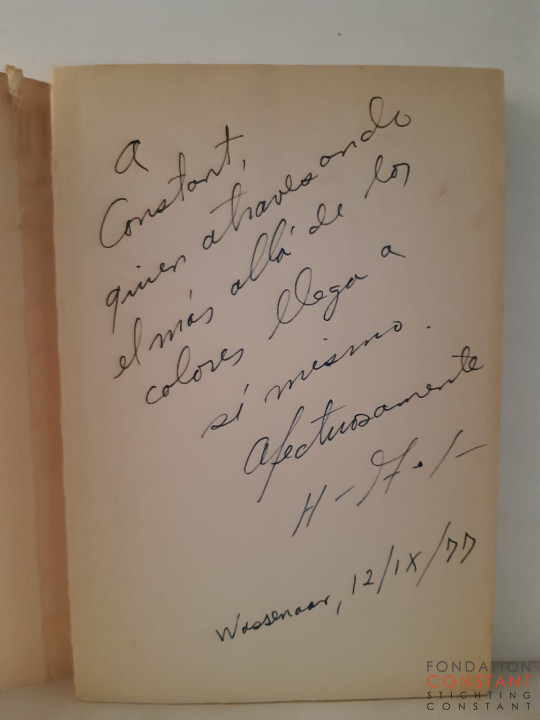 A
Constant,
quien atravesando
el más allá de los
colores llega a
sí mismo.
Afectuosamente
Wassenaar, 12/IX/77
FONDATION
CONSTANT
STICHTING
CONSTANT